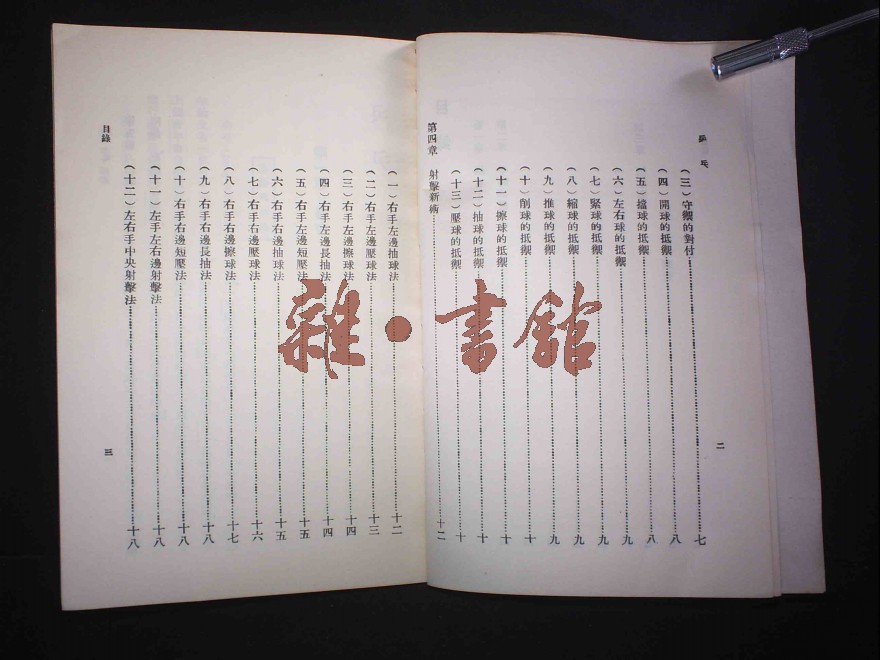 乒乓
二
(三)守禦的對付……七
(四)開球的抵禦……八
(五)擋球的抵禦……八
(六)左右球的抵禦……九
(七)緊球的抵禦……九
(八)縮球的抵禦……九
(九)推球的抵禦……九
(十)削球的抵禦……十
(十一)擦球的抵禦……十
(十二)抽球的抵禦……十
(十三)壓球的抵禦……十
第四章 射擊新術……十二
(一)右手左邊抽球法……十二
(二)右手左邊壓球法……十三
(三)右手左邊擦球法……十四
(四)右手左邊長抽法……十四
(五)右手左邊短壓法……十五
(六)右手右邊抽球法……十五
(七)右手右邊壓球法……十六
(八)右手右邊擦球法……十七
(九)右手右邊長抽法……十八
(十)右手右邊短壓法……十八
(十一)左手左右邊射擊法……十八
(十二)左右手中央射擊法……十八
目錄
三
雜・書館